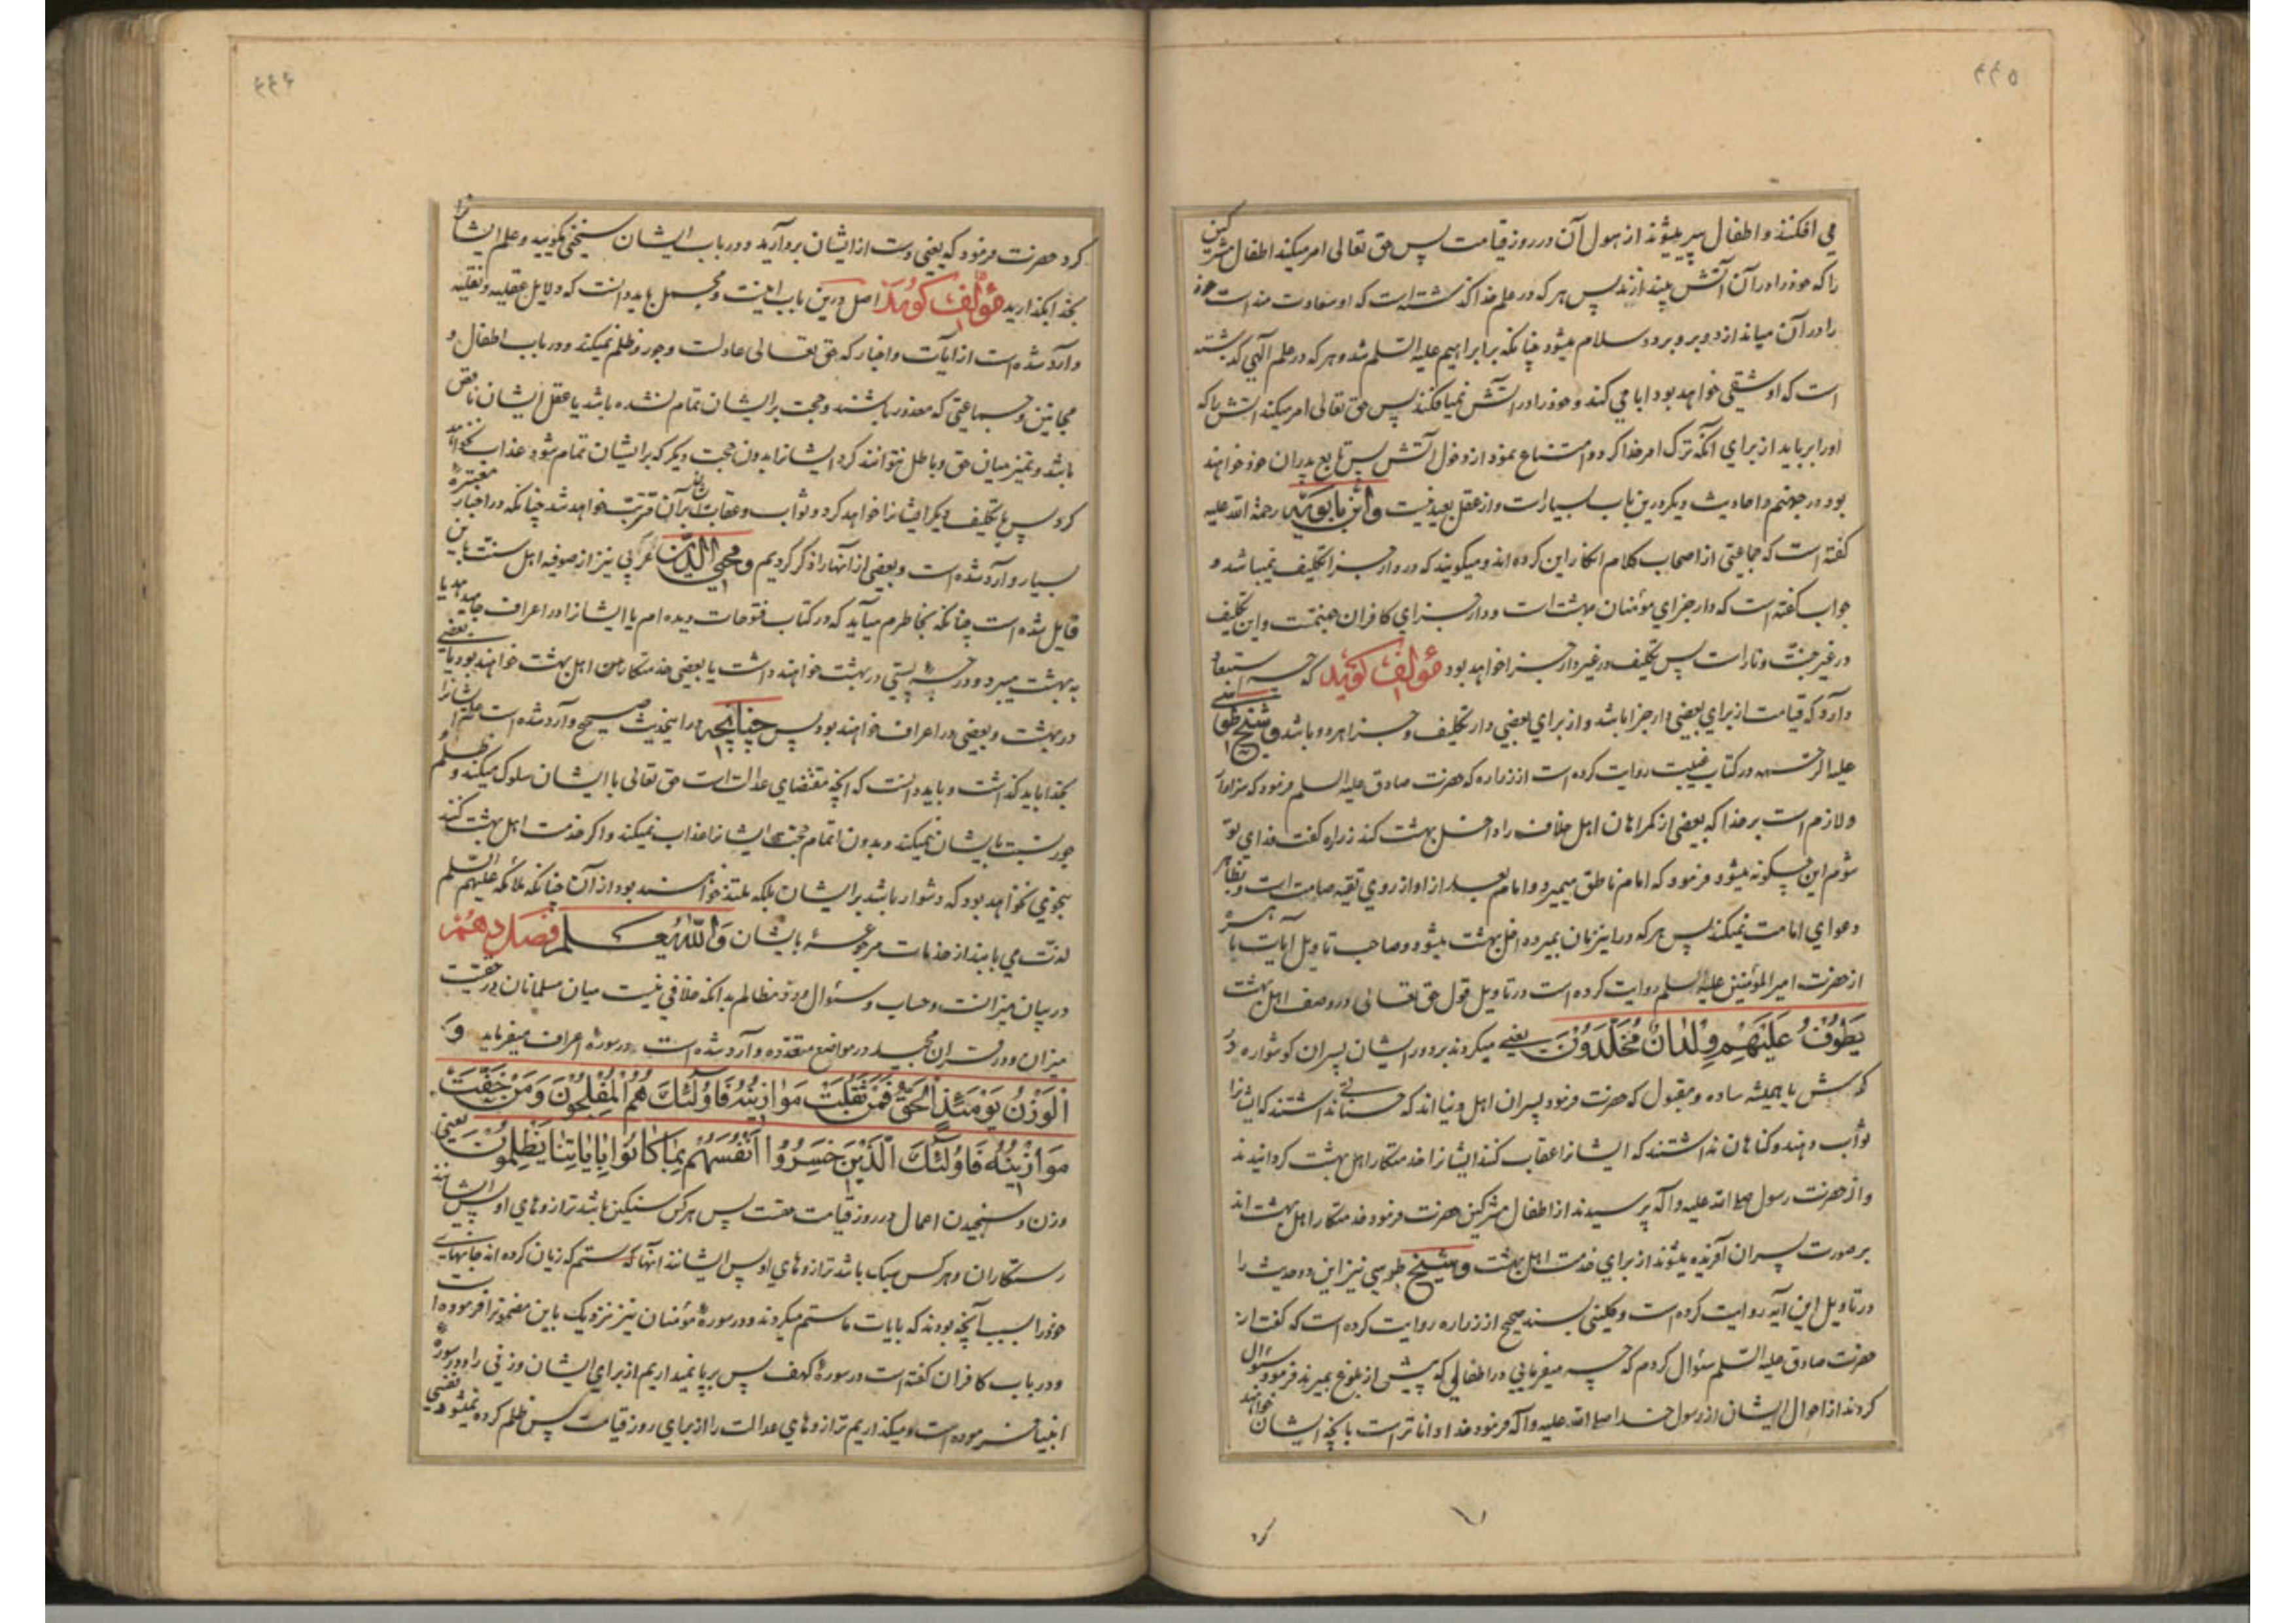 ۴۴۵
می افکنند و اطفال پیر میشوند از هول آن در روز قیامت پس حق تعالی امر میکند اطفال مشرکین
را که خود را در آن آتش بیندازند پس هر که در علم خدا گذشته است که او سعادت مند است خود
را در آن میاندازد و برو برد و سلام میشود چنانکه بر ابراهیم علیه السلم شد و هر که در علم الهی گذشته
است که او شقی خواهد بود ابا می کند و خود را در آتش نمیافکند پس حق تعالی امر میکند آتش را که
او را برباید از برای آنکه ترک امر خدا کرد و امتناع نمود از دخول آتش پس تابع پدران خود خواهند
بود در جهنم و احادیث دیگر درین باب بسیار است و از عقل بعید نیست و ابن بابویه رحمة الله علیه
گفته است که جماعتی از اصحاب کلام انکار این کرده اند و میگویند که در دار جزا تکلیف نمیباشد و
جواب گفته است که دار جزای مؤمنان بهشت است و دار جزای کافران جهنمست و این تکلیف
در غیر جنت و نار است پس تکلیف در غیر دار جزا خواهد بود مؤلف گوید که چه استبعاد
دارد که قیامت از برای بعضی دار جزا باشد و از برای بعضی دار تکلیف و جزا هر دو باشد و شیخ طوسی
علیه الرحمه در کتاب غیبت روایت کرده است از زراره که حضرت صادق علیه السلم فرمود که سزاوار
و لازم است بر خدا که بعضی از گمراهان اهل خلاف را داخل بهشت کند زراره گفت فدای تو
شوم این چگونه میشود فرمود که امام ناطق میمیرد و امام بعد از او از روی تقیه صامت است و بظاهر
دعوای امامت نمیکند پس هر که در این زمان بمیرد داخل بهشت میشود و صاحب تاویل آیات باهره
از حضرت امیر المؤمنین علیه السلم روایت کرده است در تاویل قول حق تعالی در وصف اهل بهشت
یَطُوفُ عَلَیْهِمْ وِلْدانٌ مُخَلَّدُونَ یعنی میگردند بر دور ایشان پسران گوشواره در
گوش یا همیشه ساده و مقبول که حضرت فرمود پسران اهل دنیا اند که حسناتی نداشتند که ایشانرا
ثواب دهند و گناهان نداشتند که ایشانرا عقاب کنند ایشانرا خدمتکار اهل بهشت گردانیدند
و از حضرت رسول صلی الله علیه و آله پرسیدند از اطفال مشرکین حضرت فرمود خدمتکار اهل بهشت اند
بر صورت پسران آفریده میشوند از برای خدمت اهل بهشت و شیخ طبرسی نیز این دو حدیث را
در تاویل این آیه روایت کرده است و کلینی بسند صحیح از زراره روایت کرده است که گفت از
حضرت صادق علیه السلم سئوال کردم که چه میفرمایی در اطفالی که پیش از بلوغ بمیرند فرمود سئوال
کردند از احوال ایشان از رسول خدا صلی الله علیه و آله فرمود خدا داناتر است بآنچه ایشان خواهند
کرد
۴۴۶
کرد حضرت فرمود که یعنی دست از ایشان بردارید و در باب ایشان سخنی مگویید و علم ایشانرا
بخدا بگذارید مؤلف گوید اصل درین باب اینست و مجمل باید دانست که دلایل عقلیه و نقلیه
وارد شده است از آیات و اخبار که حق تعالی عادلست و جور و ظلم نمیکند و در باب اطفال و
مجانین و جماعتی که معذور باشند و حجت بر ایشان تمام نشده باشد یا عقل ایشان ناقص
باشد و تمیز میان حق و باطل نتوانند کرد ایشانرا بدون حجت دیگر که بر ایشان تمام شود عذاب نخواهد
کرد پس یا تکلیف دیگر ایشانرا خواهد کرد و ثواب و عقاب ایشان بر آن مترتب خواهد شد چنانکه در اخبار معتبره
بسیار وارد شده است و بعضی از آنها را ذکر کردیم و محیی الدین عربی نیز از صوفیه اهل سنت باین
قایل شده است چنانکه بخاطرم میآید که در کتاب فتوحات دیده ام یا ایشانرا در اعراف جا میدهد یا
به بهشت میبرد و درجه پستی در بهشت خواهند داشت یا بعضی خدمتکاران اهل بهشت خواهند بود یا بعضی
در بهشت و بعضی در اعراف خواهند بود پس چنانچه در احادیث صحیح وارد شده است علم ایشانرا
بخدا باید گذاشت و باید دانست که آنچه مقتضای عدالت است حق تعالی با ایشان سلوک میکند و ظلم و
جور نسبت بایشان نمیکند و بدون اتمام حجت ایشانرا عذاب نمیکند و اگر خدمت اهل بهشت کنند
بنحوی نخواهد بود که دشوار باشد بر ایشان بلکه ملتذ خواهند بود از آن چنانکه ملائکه علیهم السلم
لذت می یابند از خدمات مرجوعه بایشان وَاللهُ یَعلم فصل دهم
در بیان میزانست و حساب و سئوال و رد مظالم بدانکه خلافی نیست میان مسلمانان در حقیت
میزان و در قرآن مجید در مواضع متعدده وارد شده است در سورهٔ اعراف میفرماید وَ
الْوَزْنُ یَوْمَئِذٍ الْحَقُّ فَمَنْ ثَقُلَتْ مَوازینُهُ فَاُولئِكَ هُمُ الْمُفْلِحُونَ وَ مَنْ خَفَّتْ
مَوازینُهُ فَاُولئِكَ الَّذینَ خَسِرُوا اَنْفُسَهُمْ بِما کانُوا بِایاتِنا یَظْلِمُونَ یعنی
وزن و سنجیدن اعمال در روز قیامت حقست پس هر کس سنگین باشد ترازوهای او پس ایشانند
رستگاران و هر کس سبک باشد ترازوهای او پس ایشانند آنها که ستم که زیان کرده اند جانهای
خود را بسبب آنچه بودند که بآیات ما ستم میکردند و در سورهٔ مؤمنان نیز نزدیک باین مضمون را فرموده است
و در باب کافران گفته است در سورهٔ کهف پس برپا نمیداریم از برای ایشان وزنی را و در سوره
انبیا فرموده است و میگذاریم ترازوهای عدالت را از برای روز قیامت پس ظلم کرده نمیشود نفسی